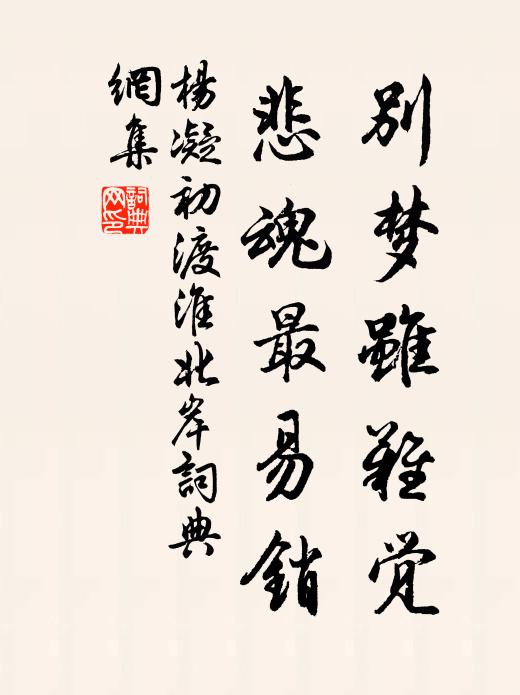 别梦雖難觉
悲魂最易銷
楊凝初渡淮北岸詞典
網集
詞典網印